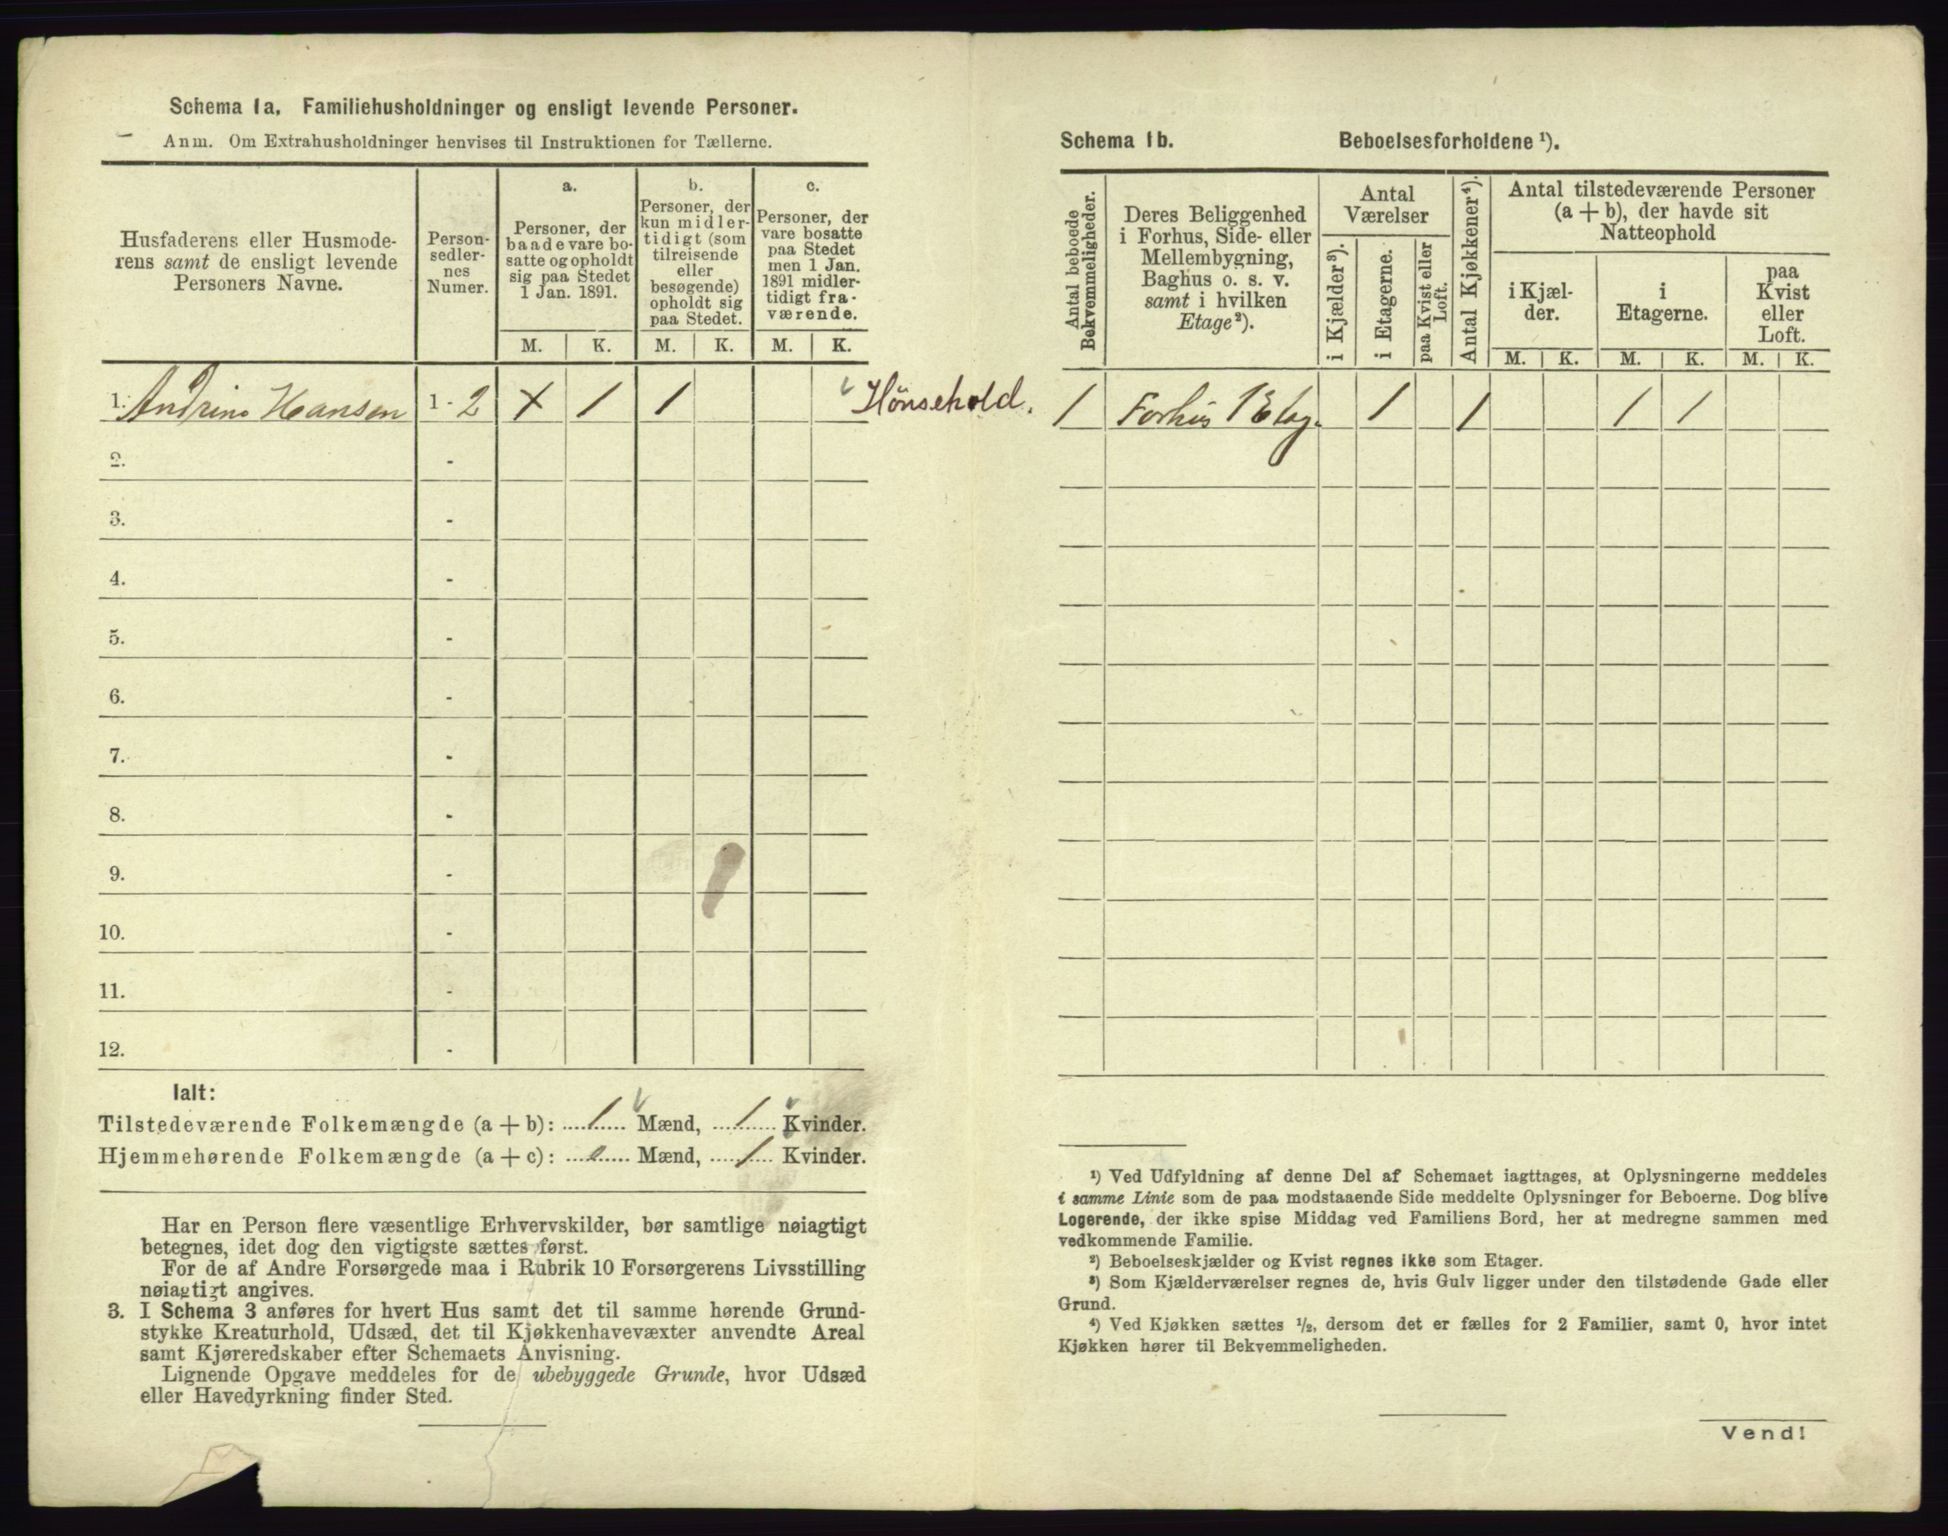 Schema 1a. Familiehusholdninger og ensligt levende Personer.
Anm. Om Extrahusholdninger henvises til Instruktionen for Tællerne.
Husfaderens eller Husmode-
rens samt de ensligt levende
Personers Navne.
Person-
sedler-
nes
Numer.
a.
Personer, der
baade vare bo-
satte og opholdt
sig paa Stedet
1 Jan. 1891.
b.
Personer, der
kun midler-
tidigt (som
tilreisende
eller
besøgende)
opholdt sig
paa Stedet.
c.
Personer, der
vare bosatte
paa Stedet
men 1 Jan.
1891 midler-
tidigt fra-
værende.
M. K. M. K. M. K.
1. Andrine Hansen 1 - 2 x 1 1 Hönsehold.
2. -
3. -
4. -
5. -
6. -
7. -
8. -
9. -
10. -
11. -
12. -
Ialt:
Tilstedeværende Folkemængde (a + b): 1 Mænd, 1 Kvinder.
Hjemmehørende Folkemængde (a + c): 0 Mænd, 1 Kvinder.
Har en Person flere væsentlige Erhvervskilder, bør samtlige nøiagtigt
betegnes, idet dog den vigtigste sættes først.
For de af Andre Forsørgede maa i Rubrik 10 Forsørgerens Livsstilling
nøiagtigt angives.
3. I Schema 3 anføres for hvert Hus samt det til samme hørende Grund-
stykke Kreaturhold, Udsæd, det til Kjøkkenhavevæxter anvendte Areal
samt Kjøreredskaber efter Schemaets Anvisning.
Lignende Opgave meddeles for de ubebyggede Grunde, hvor Udsæd
eller Havedyrkning finder Sted.
Schema 1b. Beboelsesforholdene ¹).
Antal beboede
Bekvemmeligheder.
Deres Beliggenhed
i Forhus, Side- eller
Mellembygning,
Baghus o. s. v.
samt i hvilken
Etage²).
Antal
Værelser
i Kjælder³).
i Etagerne.
paa Kvist eller
Loft.
Antal Kjøkkener⁴).
Antal tilstedeværende Personer
(a + b), der havde sit
Natteophold
i Kjæl-
der.
i
Etagerne.
paa
Kvist
eller
Loft.
M. K. M. K. M. K.
1 Forhus 1 Etag. 1 1 1 1
¹) Ved Udfyldning af denne Del af Schemaet iagttages, at Oplysningerne meddeles
i samme Linie som de paa modstaaende Side meddelte Oplysninger for Beboerne. Dog blive
Logerende, der ikke spise Middag ved Familiens Bord, her at medregne sammen med
vedkommende Familie.
²) Beboelseskjælder og Kvist regnes ikke som Etager.
³) Som Kjælderværelser regnes de, hvis Gulv ligger under den tilstødende Gade eller
Grund.
⁴) Ved Kjøkken sættes ½, dersom det er fælles for 2 Familier, samt 0, hvor intet
Kjøkken hører til Bekvemmeligheden.
Vend!